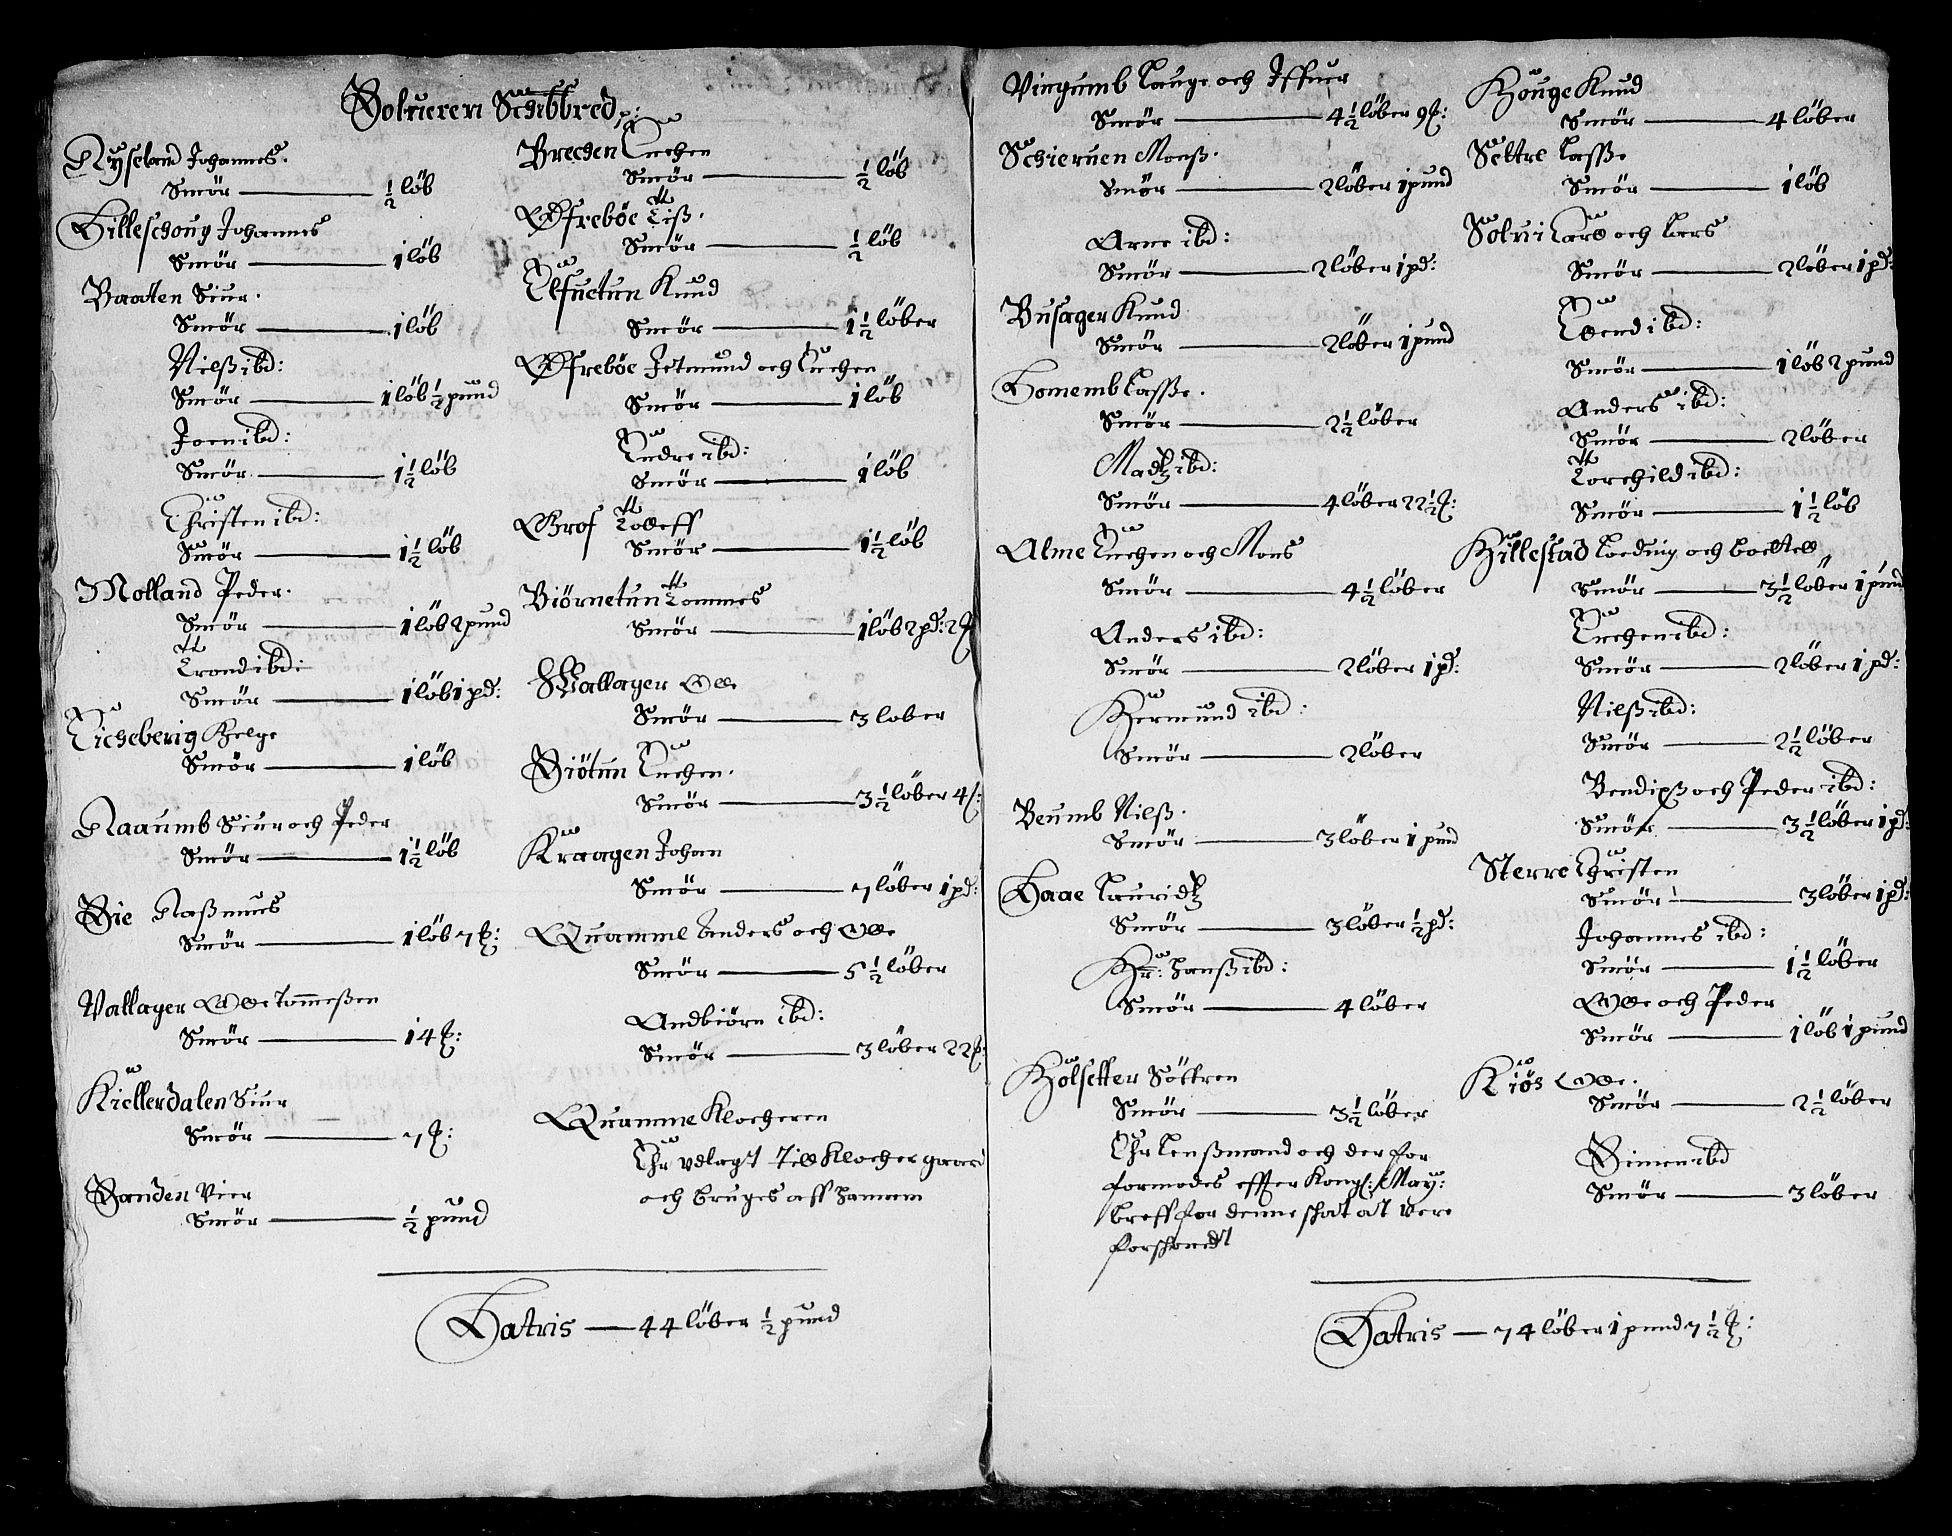 Solueren Schibbred
Nyseland Johannes.
Smör — ½ löb
Hilleschoug Johannes
Smör — 1 löb
Baaten Siur.
Smör — 1 löb
Nilß ibd:
Smör — 1 löb ½ pund
Joen ibd:
Smör — 1½ löb
Christen ibd:
Smör — 1½ löb
Molland Peder.
Smör — 1 löb 2 pund
Trond ibd:
Smör — 1 löb 1 pd:
Eicheberig Helge
Smör — 1 löb
Naaumb Siur och Peder
Smör — 1½ löb
Bie Raßmus
Smör — 1 löb 7 ℔:
Vallager Olle Tommeßen
Smör — 14 ℔:
Kiellerdalen Siur
Smör — 7 ℔:
Sanden Vier
Smör — ½ pund
Brechen Enchen
Smör — ½ löb
Öfreböe Tiß.
Smör — ½ löb
Elfuetun Knud
Smör — 1½ löber
Öfreböe Jetmund och Enchen
Smör — 1 löb
Endre ibd:
Smör — 1 löb
Grof Tolleff
Smör — 1½ löb
Biörnetun Tommes
Smör — 1 löb 2 pd: 2 ℔
Wallager Olle
Smör — 3 lober
Biötun Enchen.
Smör — 3½ löber 4 ℔:
Kraagen Johan
Smör — 7 löber 1 pd:
Quamme Anders och Olle
Smör — 5½ löber
Andbiörn ibd:
Smör — 3 löber 22 ℔:
Quamme Klocheren
Ehr vdlagt till Klocher gaard
och bruges aff hannem
Hatris — 44 löber ½ pund
Vingumb Lauge och Iffuer
Smör — 4½ löber 9 ℔:
Schieruen Monß.
Smör — 2 löber 1 pund
Arne ibd:
Smör — 2 löber 1 pd:
Busager Knud
Smör — 2 löber 1 pund
Homemb Lasse.
Smör — 2½ löber
Madtz ibd:
Smör — 4 löber 22½ ℔:
Alme Enchen och Mons
Smör — 4½ löber
Anders ibd:
Smör — 2 löber 1 pd:
Hermund ibd:
Smör — 2 löber
Beumb Nilß.
Smör — 3 löber 1 pund
Haae Lauridtz
Smör — 3 löber ½ pd:
Hr: Hanß ibd:
Smör — 4 löber
Hölsetter Söffren
Smör — 3½ löber
Ehr Lenßmand och der for
formodes effter Kongl: May:
breff for denne skat at vere
forskonedt
Houge Knud
Smör — 4 löber
Settre Lasse
Smör — 1 löb
Solui Lars och Lars
Smör — 2 löber 1 pd:
Ellend ibd:
Smör — 1 löb 2 pund
Anders ibd:
Smör — 2 löber
Torchild ibd:
Smör — 1½ löb
Hillestad Loduig och Botell
Smör — 3½ löber 1 pund
Enchen ibd:
Smör — 2 löber 1 pd:
Nilß ibd:
Smör — 2½ löber
Bendixß och Peder ibd:
Smör — 3½ löber 1 pd:
Sterre Christen
Smör — 3 löber 1 pd:
Johannes ibd:
Smör — 1½ löber
Olle och Peder
Smör — 1 löb 1 pund
Kiös Olle.
Smör — 2½ löber
Simen ibd
Smör — 3 löber
Hatris — 74 löber 1 pund 7½ ℔: